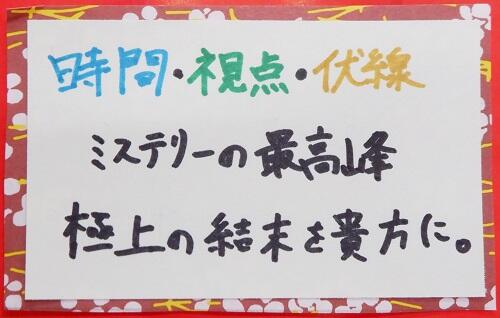 時間・視点・伏線
ミステリーの最高峰
極上の結末を貴方に。